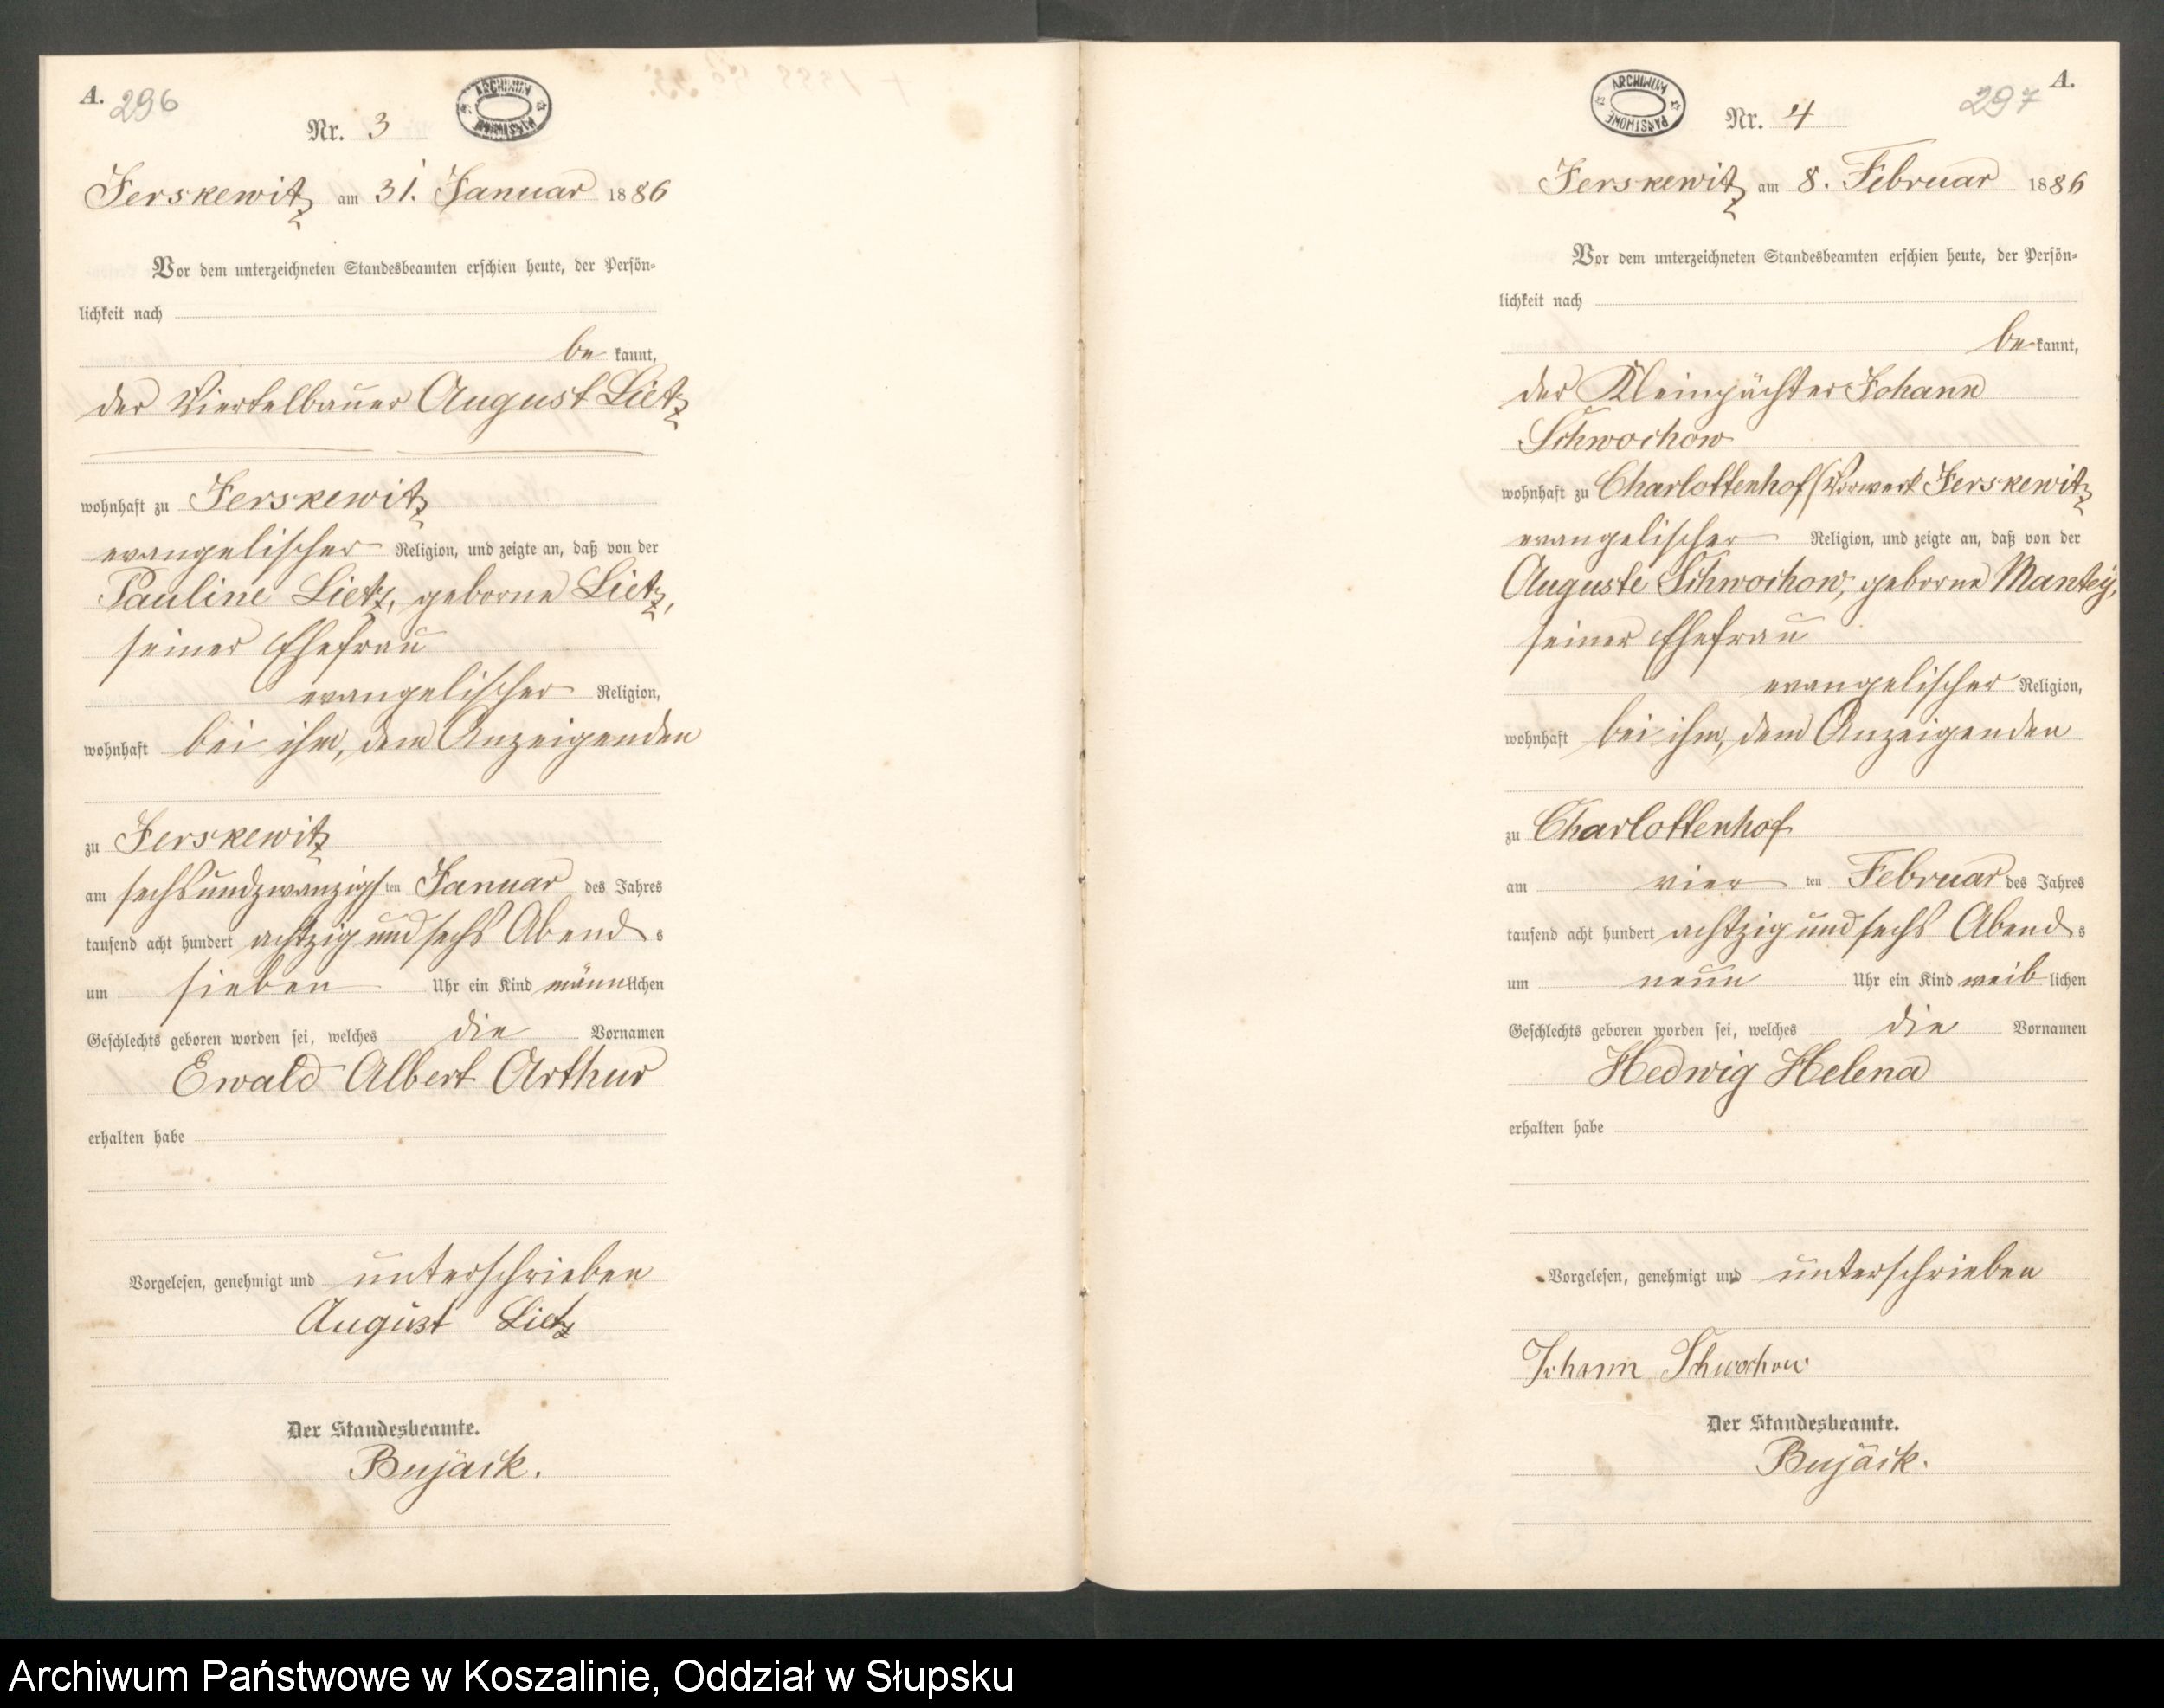 A. 296
ARCHIWUM PAŃSTWOWE
Nr. 3
Jerskewitz am 31. Januar 1886
Vor dem unterzeichneten Standesbeamten erschien heute, der Persön-
lichkeit nach
be kannt,
der Viertelbauer August Lietz
wohnhaft zu Jerskewitz
evangelischer Religion, und zeigte an, daß von der
Pauline Lietz, geborne Lietz,
seiner Ehefrau
evangelischer Religion,
wohnhaft bei ihm, dem Anzeigenden
zu Jerskewitz
am sechsundzwanzigsten Januar des Jahres
tausend acht hundert achtzig und sechs Abends
um sieben Uhr ein Kind männlichen
Geschlechts geboren worden sei, welches die Vornamen
Ewald Albert Arthur
erhalten habe
Vorgelesen, genehmigt und unterschrieben
August Lietz
Der Standesbeamte.
Bujäck.
A.
297
ARCHIWUM PAŃSTWOWE
Nr. 4
Jerskewitz am 8. Februar 1886
Vor dem unterzeichneten Standesbeamten erschien heute, der Persön-
lichkeit nach
be kannt,
der Kleinpächter Johann
Schwochow
wohnhaft zu Charlottenhof (Vorwerk Jerskewitz
evangelischer Religion, und zeigte an, daß von der
Auguste Schwochow, geborne Mantey,
seiner Ehefrau
evangelischer Religion,
wohnhaft bei ihm, dem Anzeigenden
zu Charlottenhof
am vier ten Februar des Jahres
tausend acht hundert achtzig und sechs Abends
um neun Uhr ein Kind weib lichen
Geschlechts geboren worden sei, welches die Vornamen
Hedwig Helena
erhalten habe
Vorgelesen, genehmigt und unterschrieben
Johann Schwochow
Der Standesbeamte.
Bujäck.
Archiwum Państwowe w Koszalinie, Oddział w Słupsku